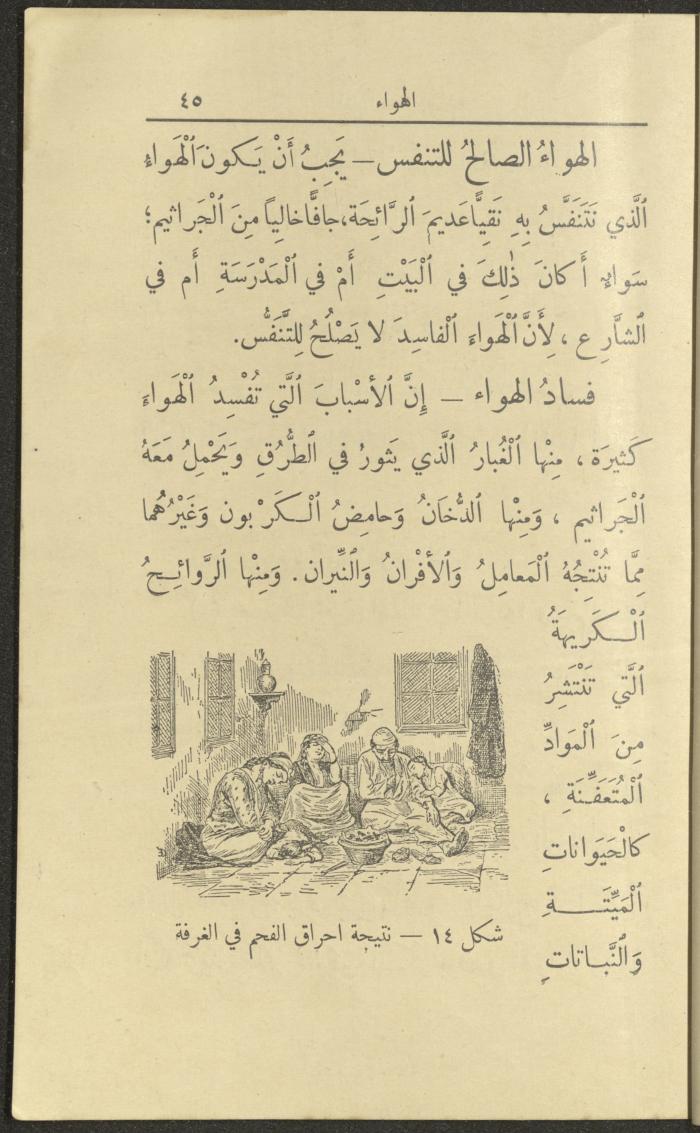 الهواء ٤٥
الهواءُ الصالحُ للتنفس — يَجِبُ أَنْ يَكونَ ٱلْهَواءُ
ٱلَّذي نَتَنَفَّسُ بِهِ نَقِيًّا عَديمَ ٱلرَّائِحَة، جافًّا خالياً مِنَ ٱلْجَراثيم؛
سَواءٍ أَكانَ ذٰلِكَ في ٱلْبَيْتِ أَمْ في ٱلْمَدْرَسَةِ أَم في
ٱلشارِع ، لِأَنَّ ٱلْهَواءَ ٱلْفاسِدَ لا يَصْلُحُ لِلتَّنَفُّس.
فسادُ الهواء — إِنَّ ٱلأَسْبابَ ٱلَّتي تُفْسِدُ ٱلْهَواءَ
كَثيرَة ، مِنْها ٱلْغُبارُ ٱلَّذي يَثورُ في ٱلطُّرُقِ وَيَحْمِلُ مَعَهُ
ٱلْجَراثيم ، وَمِنْها ٱلدُّخَانُ وَحامِضُ ٱلْكَرْبون وَغَيْرُهُما
مِمَّا تُنْتِجُهُ ٱلْمَعامِلُ وَٱلأَفْرانُ وَٱلنِّيران . وَمِنْها ٱلرَّوائِحُ
ٱلْكَريهَةُ
ٱلَّتي تَنْتَشِرُ
مِنَ ٱلْمَوادِّ
ٱلْمُتَعَفِّنَةِ ،
كالْحَيَواناتِ
ٱلْمَيِّتَةِ
وَٱلنَّباتاتِ
شكل ١٤ — نتيجة احراق الفحم في الغرفة